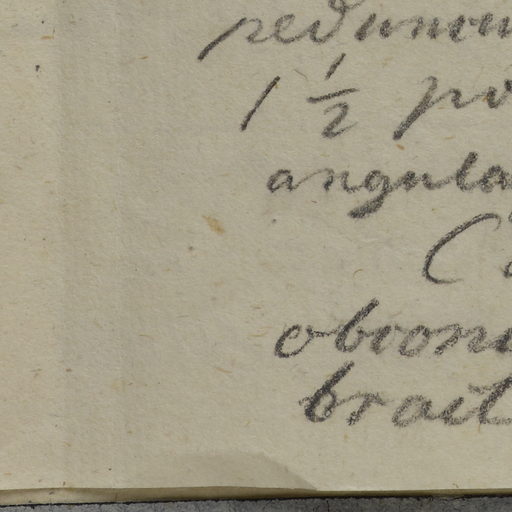 peduncu
1 1/2 po
angula
(
obconi
brait